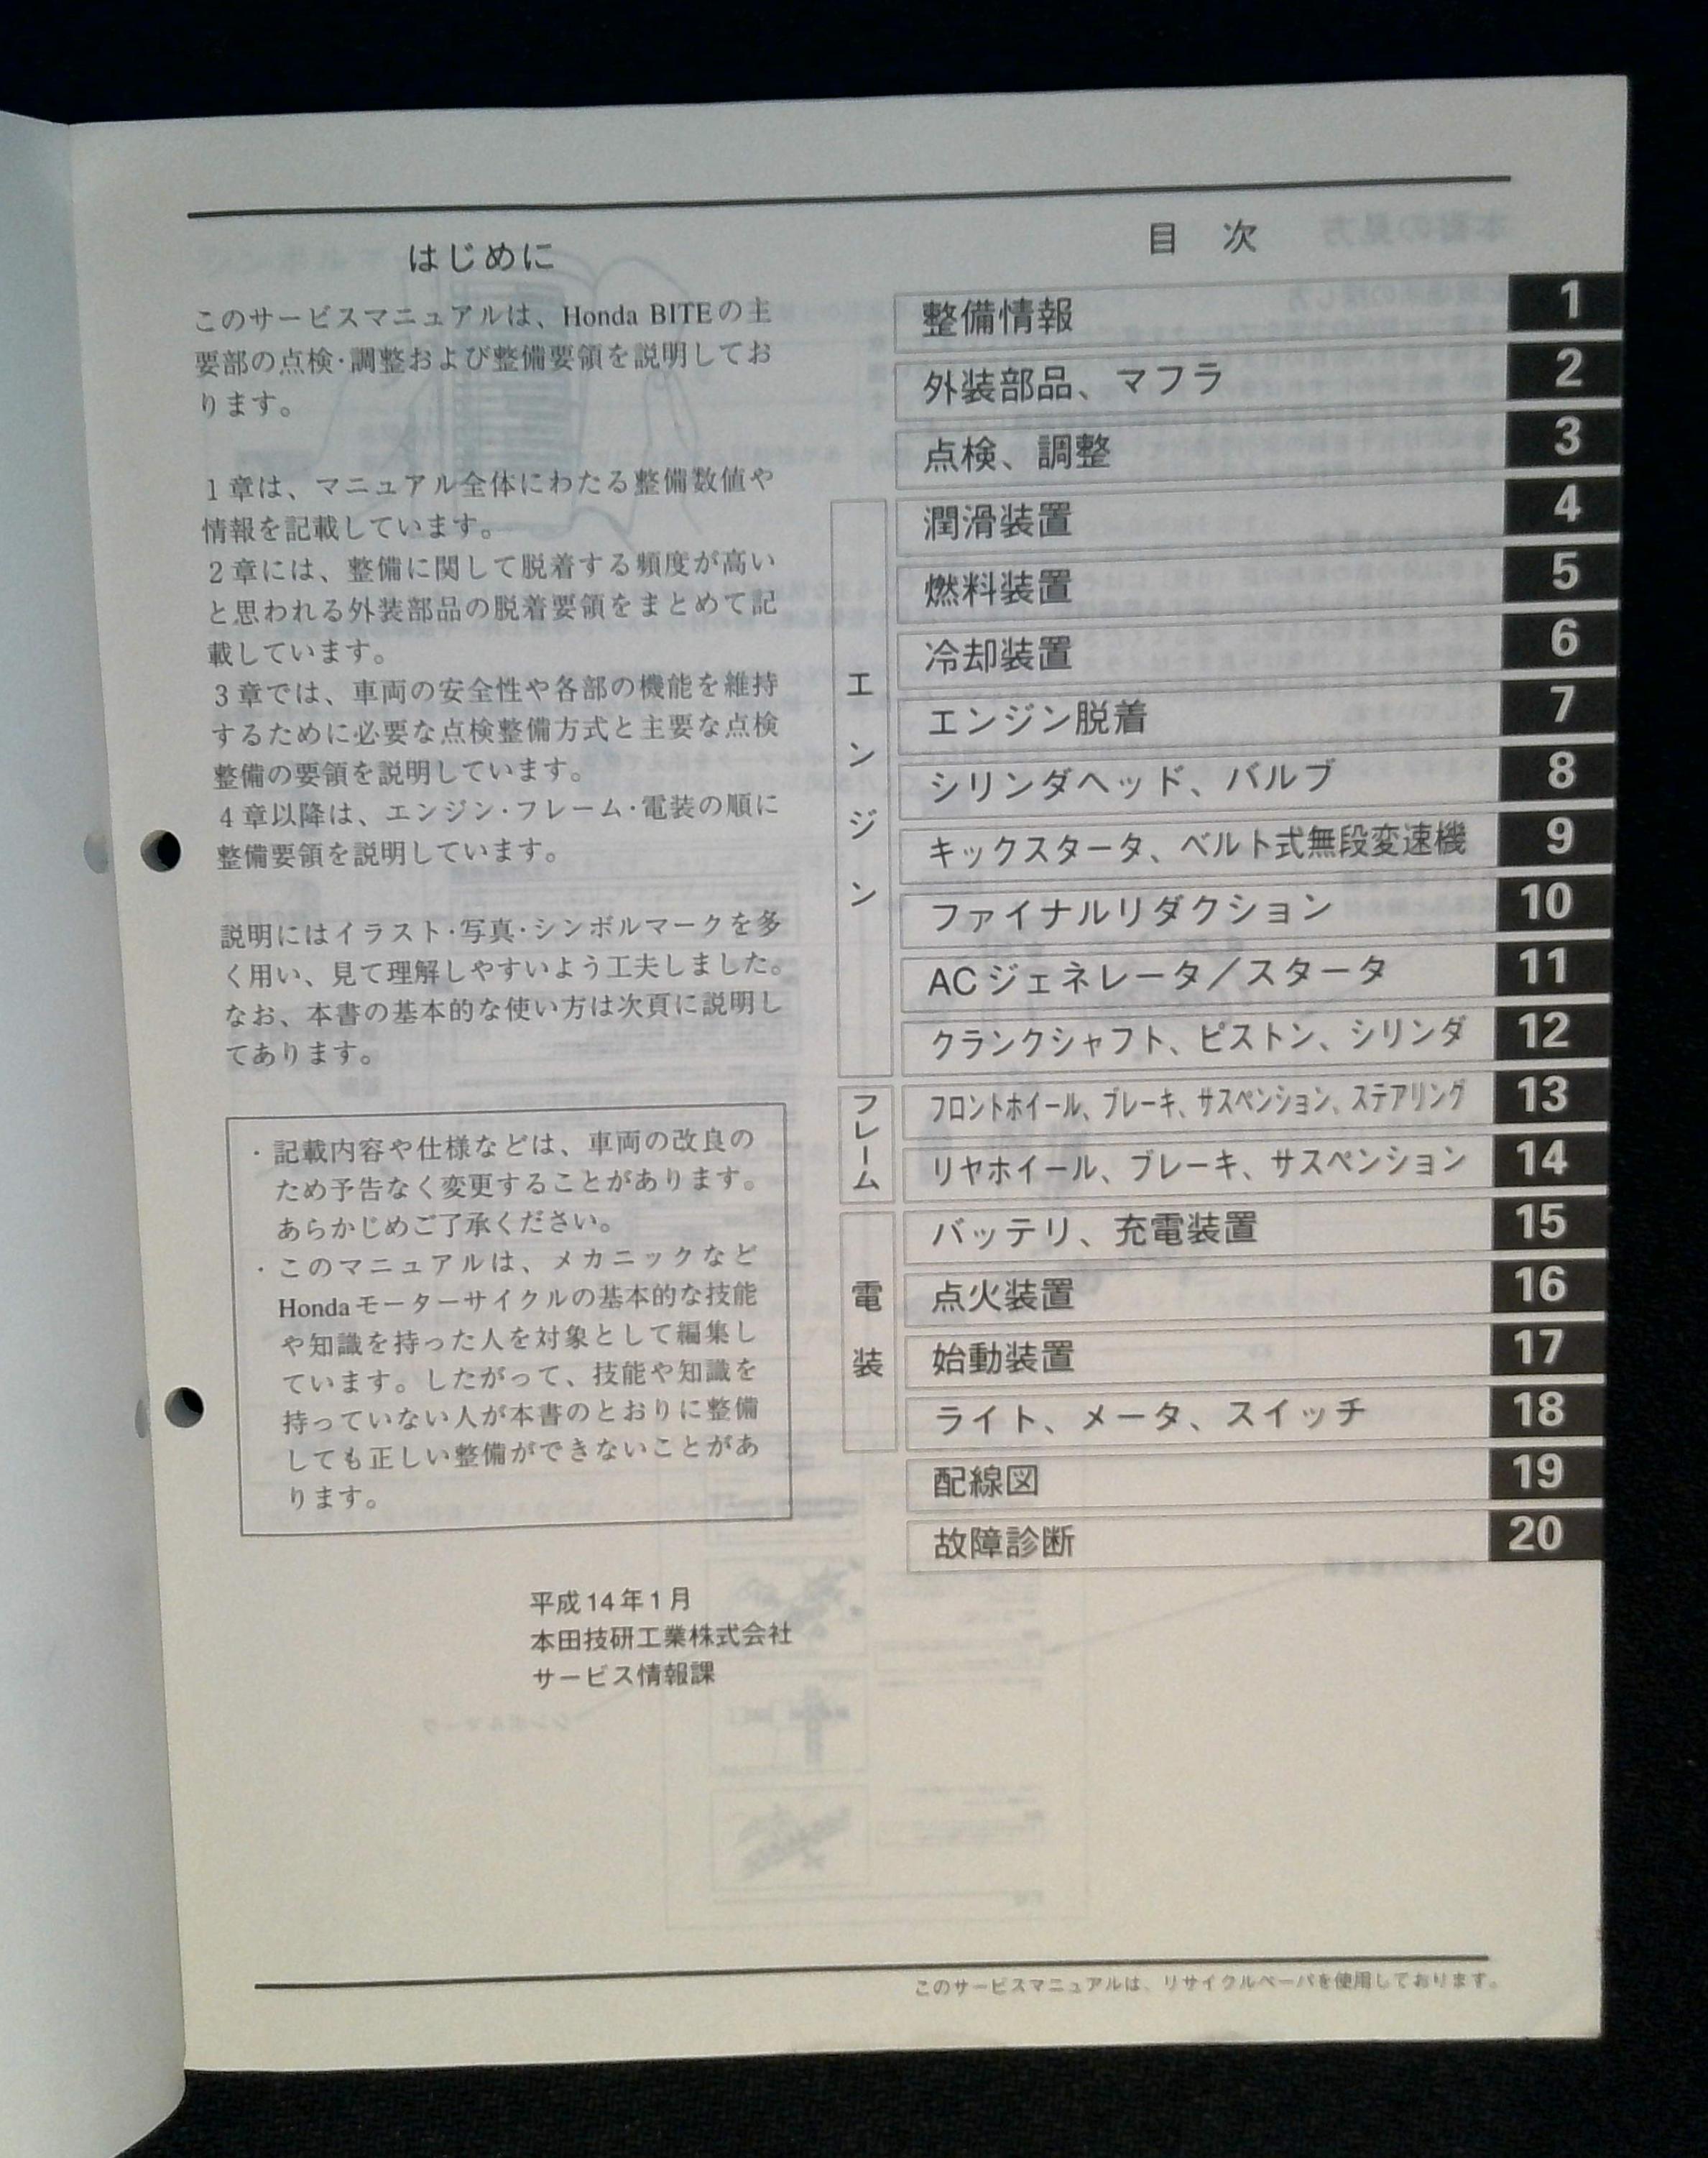 はじめに
このサービスマニュアルは、Honda BITEの主
要部の点検・調整および整備要領を説明してお
ります。
1章は、マニュアル全体にわたる整備数値や
情報を記載しています。
2章には、整備に関して脱着する頻度が高い
と思われる外装部品の脱着要領をまとめて記
載しています。
3章では、車両の安全性や各部の機能を維持
するために必要な点検整備方式と主要な点検
整備の要領を説明しています。
4章以降は、エンジン・フレーム・電装の順に
整備要領を説明しています。
説明にはイラスト・写真・シンボルマークを多
く用い、見て理解しやすいよう工夫しました。
なお、本書の基本的な使い方は次頁に説明し
てあります。
・記載内容や仕様などは、車両の改良の
ため予告なく変更することがあります。
あらかじめご了承ください。
・このマニュアルは、メカニックなど
Hondaモーターサイクルの基本的な技能
や知識を持った人を対象として編集し
ています。したがって、技能や知識を
持っていない人が本書のとおりに整備
しても正しい整備ができないことがあ
ります。
平成14年1月
本田技研工業株式会社
サービス情報課
目 次
整備情報 1
外装部品、マフラ 2
点検、調整 3
エンジン
潤滑装置 4
燃料装置 5
冷却装置 6
エンジン脱着 7
シリンダヘッド、バルブ 8
キックスタータ、ベルト式無段変速機 9
ファイナルリダクション 10
ACジェネレータ／スタータ 11
クランクシャフト、ピストン、シリンダ 12
フレーム
フロントホイール、ブレーキ、サスペンション、ステアリング 13
リヤホイール、ブレーキ、サスペンション 14
電装
バッテリ、充電装置 15
点火装置 16
始動装置 17
ライト、メータ、スイッチ 18
配線図 19
故障診断 20
このサービスマニュアルは、リサイクルペーパを使用しております。